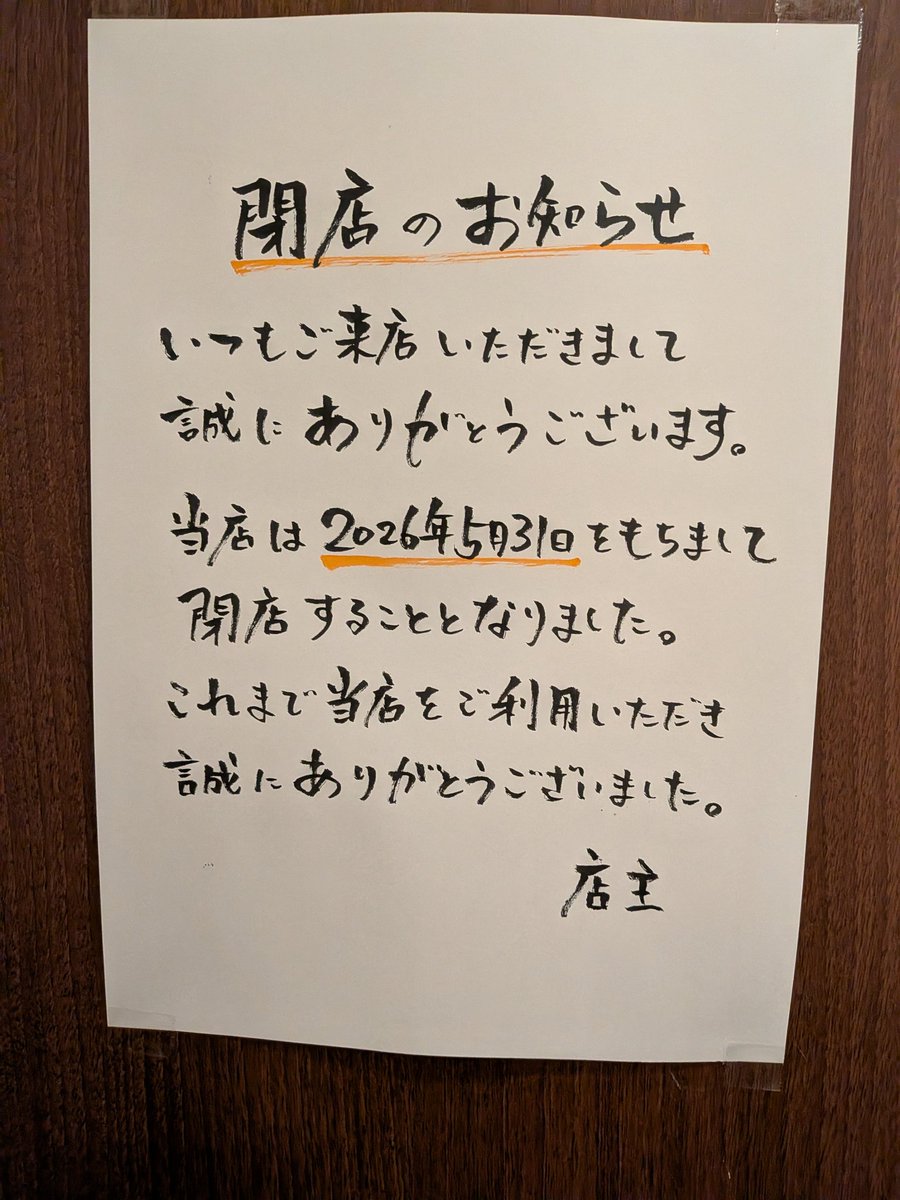 閉店のお知らせ
いつもご来店いただきまして
誠にありがとうございます。
当店は2026年5月31日をもちまして
閉店することとなりました。
これまで当店をご利用いただき
誠にありがとうございました。
店主